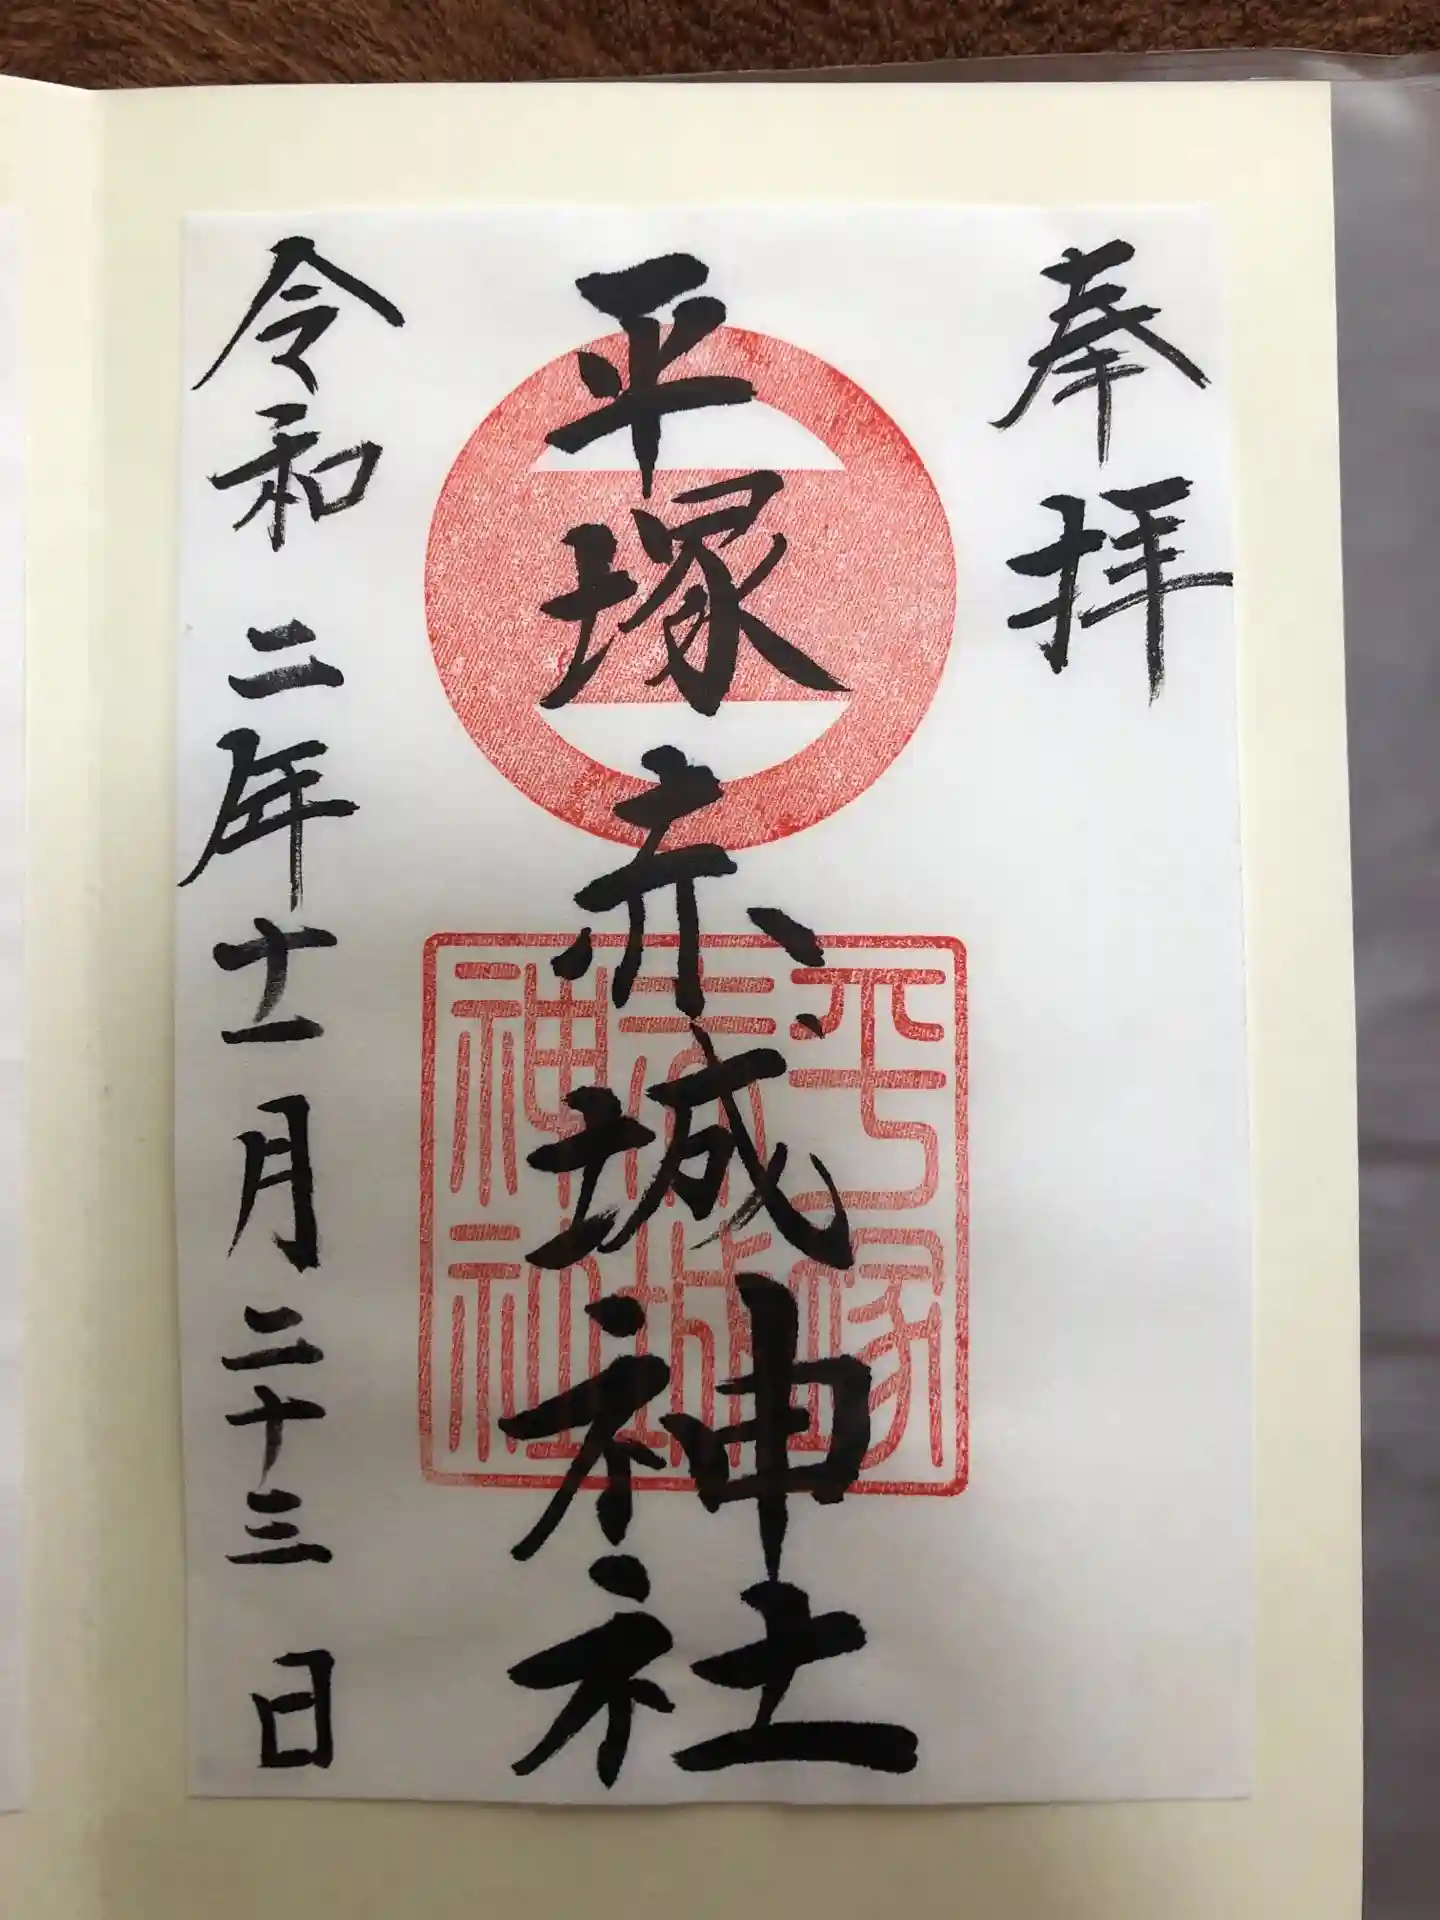 奉拝
平塚赤城神社
平塚赤城神社
令和二年十一月二十三日